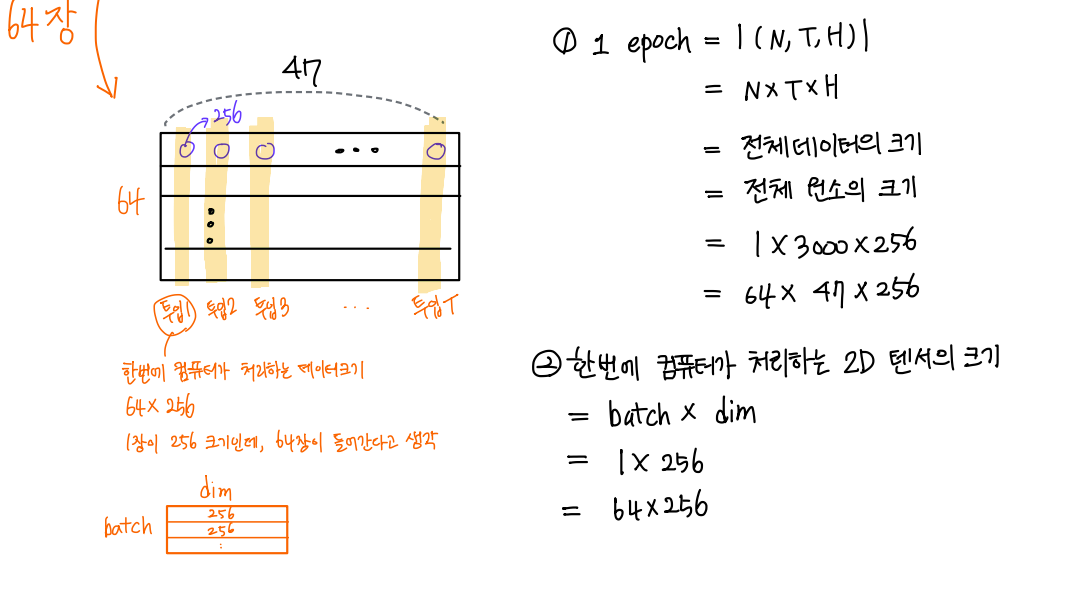 64장
47
256
64
투입1 투입2 투입3 ... 투입T
한번에 컴퓨터가 처리하는 데이터크기
64 × 256
1장이 256 크기인데, 64장이 들어간다고 생각
dim
batch
256
256
① 1 epoch = |(N, T, H)|
= N×T×H
= 전체데이터의 크기
= 전체 원소의 크기
= 1 × 3000 × 256
= 64 × 47 × 256
② 한번에 컴퓨터가 처리하는 2D 텐서의 크기
= batch × dim
= 1 × 256
= 64×256